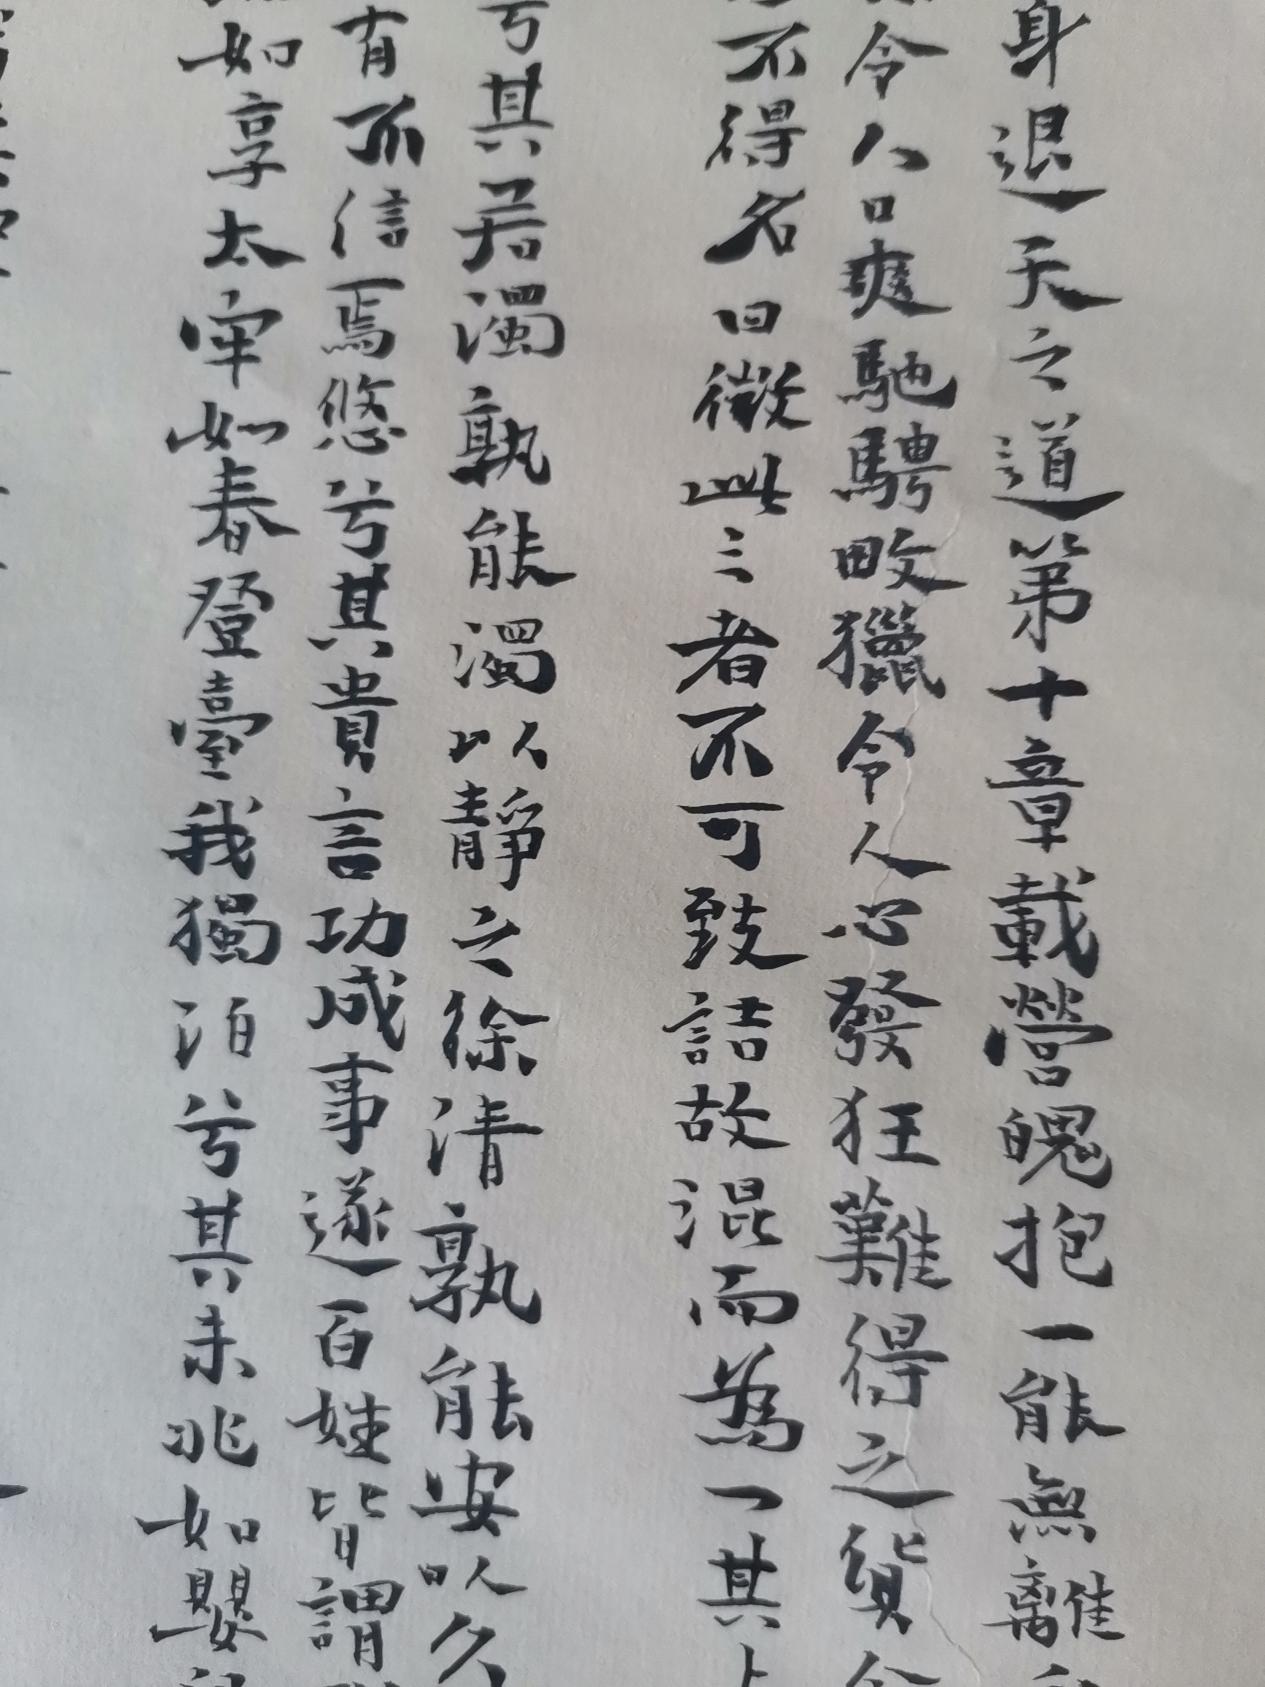 身退天之道第十章載營魄抱一能無離
令人口爽馳騁畋獵令人心發狂難得之貨令
不得名曰微此三者不可致詰故混而為一其上
兮其若濁孰能濁以靜之徐清孰能安以久
有不信焉悠兮其貴言功成事遂百姓皆謂
如享太牢如春登臺我獨泊兮其未兆如嬰